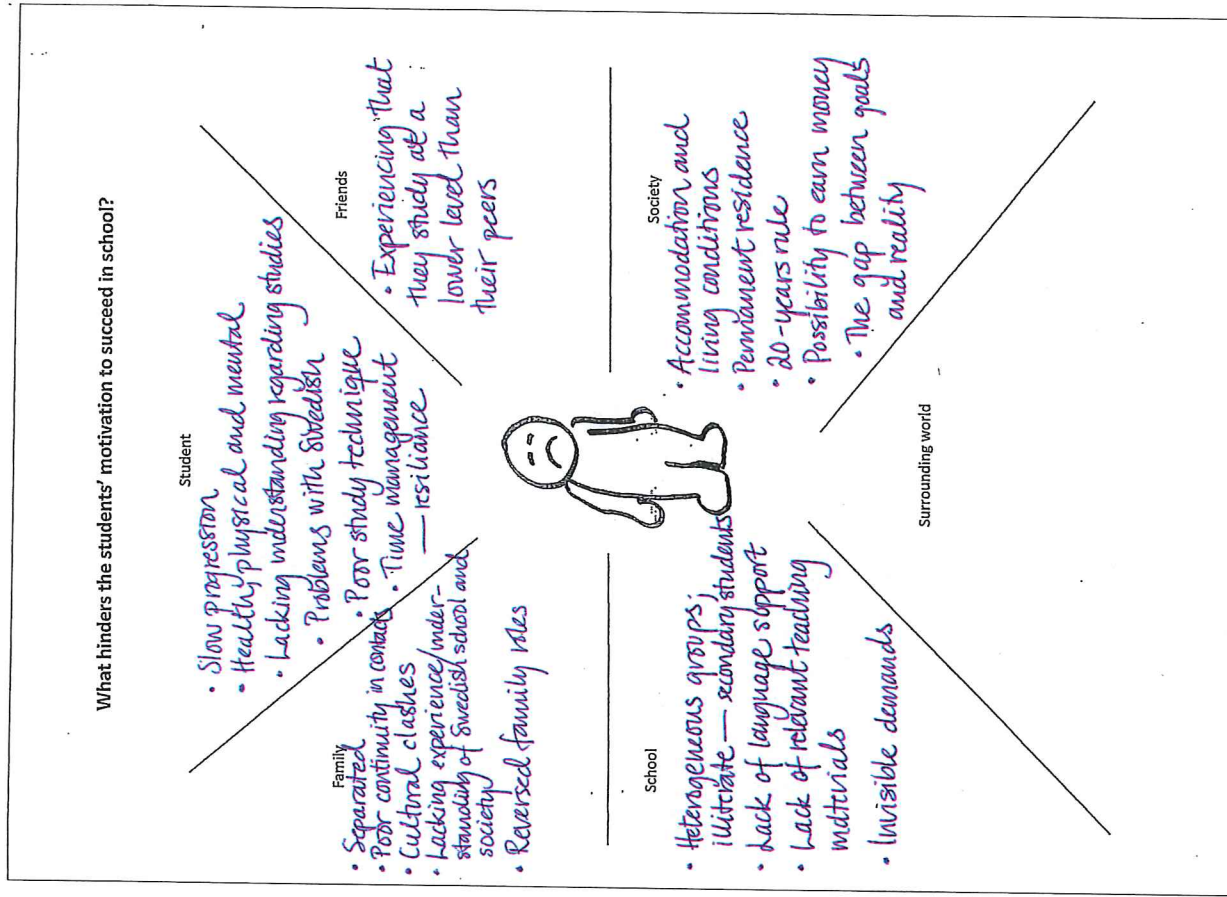 What hinders the students' motivation to succeed in school?
Student
• Slow progression
• Health, physical and mental
• Lacking understanding regarding studies
• Problems with Swedish
• Poor study technique
• Time management
— resiliance
Friends
• Experiencing that
they study at a
lower level than
their peers
Family
• Separated
• Poor continuity in contacts
• Cultural clashes
• Lacking experience/under-
standing of Swedish school and
society
• Reversed family roles
Society
• Accommodation and
living conditions
• Permanent residence
• 20-years rule
• Possibility to earn money
• The gap between goals
and reality
School
• Heterogeneous groups;
illiterate — secondary students
• Lack of language support
• Lack of relevant teaching
materials
• Invisible demands
Surrounding world